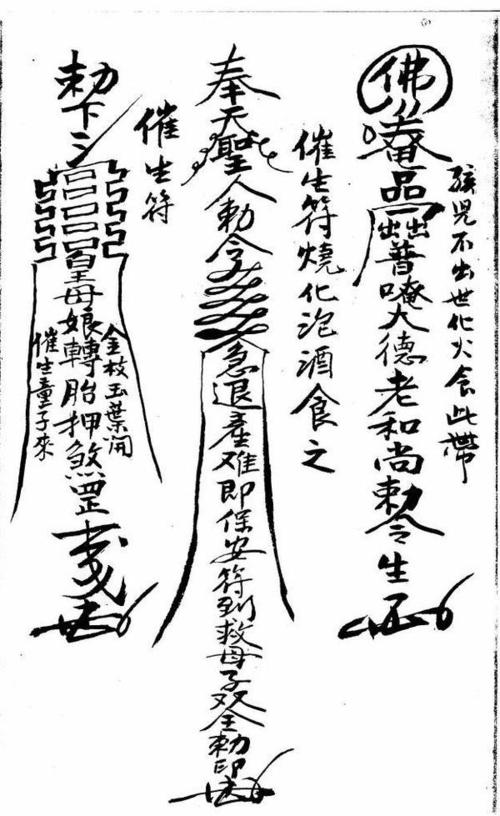 孩児不出世化火食此帶
佛
唵
品
普唵大德老和尚勅令生
催生符燒化泡酒食之
奉天聖人勅令
急退產难即保安符到救母子双全勅印
催生符
勅下
皇母娘轉胎押煞罡
金枝玉葉開
催生童子來